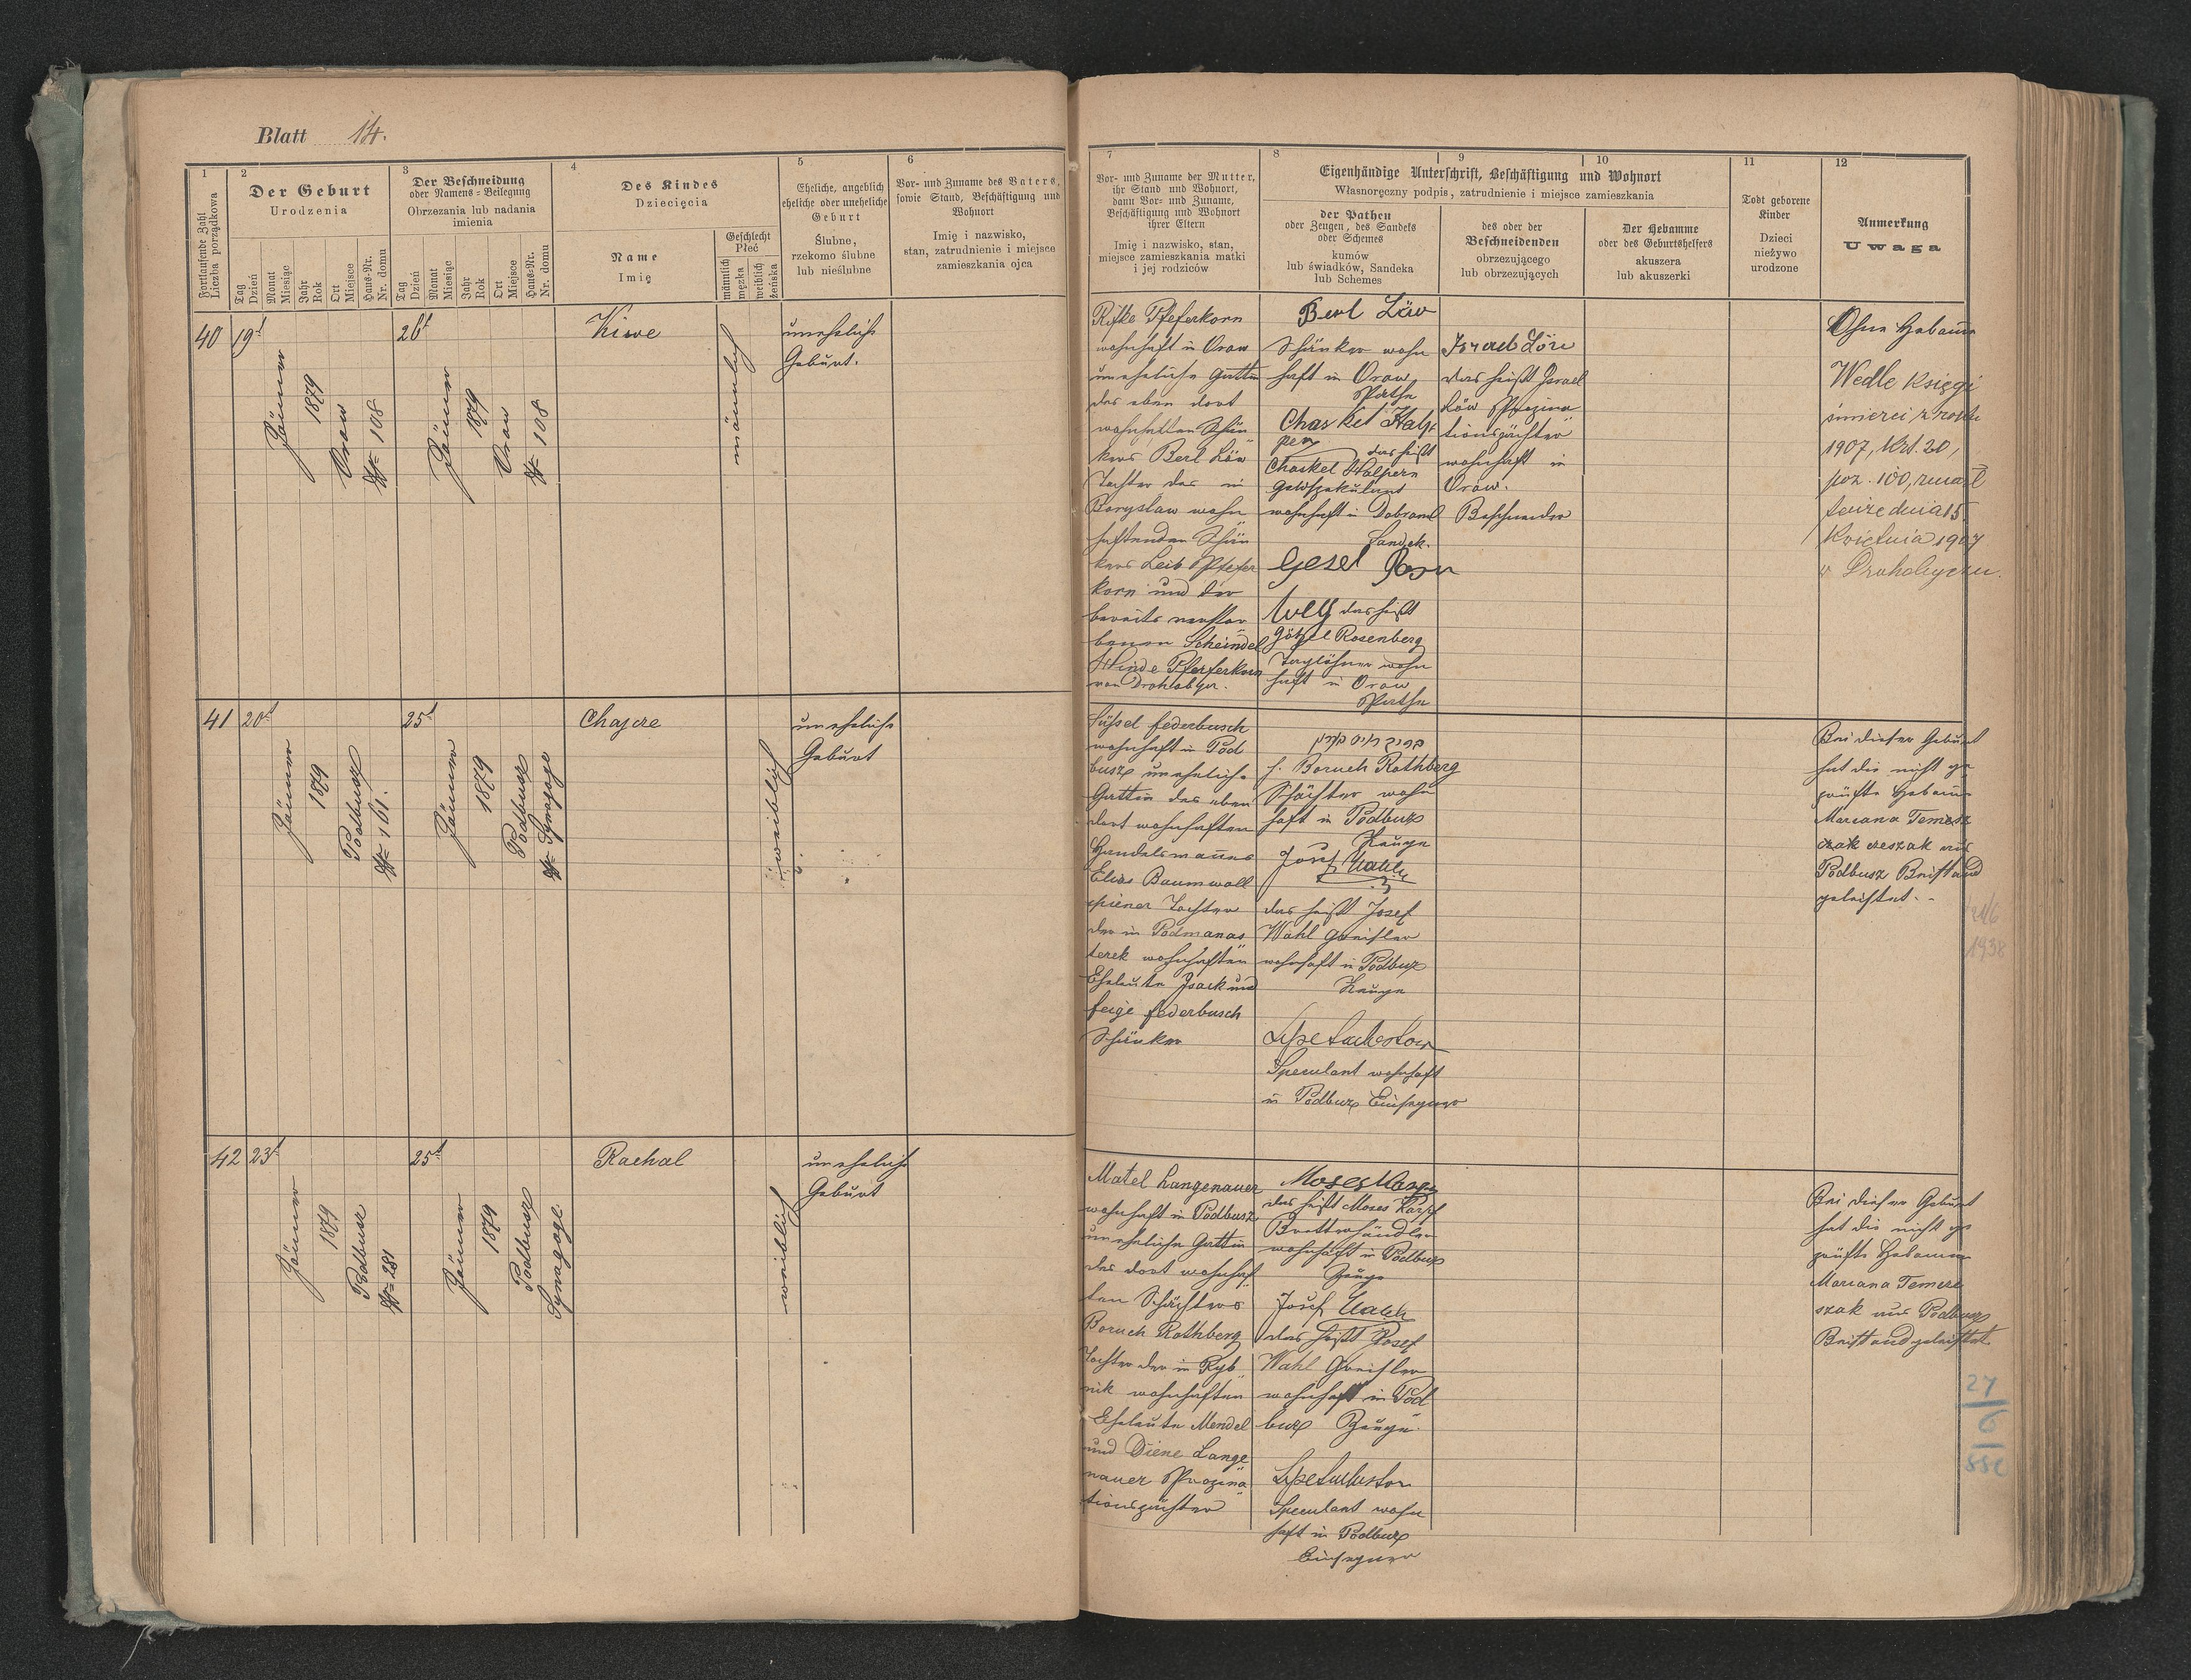 Blatt 14.
1
Fortlaufende Zahl
Liczba porządkowa
2
Der Geburt
Urodzenia
Tag
Dzień
Monat
Miesiąc
Jahr
Rok
Ort
Miejsce
Haus-Nr.
Nr. domu
3
Der Beschneidung
oder Namens-Beilegung
Obrzezania lub nadania
imienia
Tag
Dzień
Monat
Miesiąc
Jahr
Rok
Ort
Miejsce
Haus-Nr.
Nr. domu
4
Des Kindes
Dziecięcia
Name
Imię
Geschlecht
Płeć
männlich
męzka
weiblich
żeńska
5
Eheliche, angeblich
eheliche oder uneheliche
Geburt
Ślubne,
rzekomo ślubne
lub nieślubne
6
Vor- und Zuname des Vaters,
sowie Stand, Beschäftigung und
Wohnort
Imię i nazwisko,
stan, zatrudnienie i miejsce
zamieszkania ojca
7
Vor- und Zuname der Mutter,
ihr Stand und Wohnort,
dann Vor- und Zuname,
Beschäftigung und Wohnort
ihrer Eltern
Imię i nazwisko, stan,
miejsce zamieszkania matki
i jej rodziców
8
9
10
Eigenhändige Unterschrift, Beschäftigung und Wohnort
Własnoręczny podpis, zatrudnienie i miejsce zamieszkania
der Pathen
oder Zeugen, des Sandeks
oder Schemes
kumów
lub świadków, Sandeka
lub Schemes
des oder der
Beschneidenden
obrzezującego
lub obrzezujących
Der Hebamme
oder des Geburtshelfers
akuszera
lub akuszerki
11
Todt geborene
Kinder
Dzieci
nieżywo
urodzone
12
Anmerkung
Uwaga
40
19t
Jänner
1879
Orow
№ 108
26t
Jänner
1879
Orow
№ 108
Kiwe
männlich
uneheliche
Geburt.
Rifke Pfeferkorn
wohnhaft in Orow
uneheliche Gattin
des eben dort
wohnhaften Schän
kers Berl Löw
Tochter des in
Boryslaw wohn
haftenden Schän
kers Leib Pfefer
korn und der
bereits verstor
benen Scheindel
Hinde Pfeferkorn
von Drohobycz.
Berl Löw
Schänker wohn
haft in Orow
Pathe
Chaskel Halp
pern
das heißt
Chaskel Halpern
wohnhaft in Dobromil
Sandek.
das heißt
Götzel Rosenberg
Taglöhner wohn
haft in Orow
Pathe
das heißt Israel
Löw Propina
tionspächter
wohnhaft in
Orow.
Beschneider
Ohne Hebame
Wedle księgi
śmierci z roku
1907, krt. 20,
poz. 100, zmarł
tenże dnia 15.
kwietnia 1907
w Drohobyczu.
41
20t
Jänner
1879
Podbusz
№ 161.
25t
Jänner
1879
Podbusz
№ Synagoge
Chajcre
weiblich
uneheliche
Geburt
Süssel Federbusch
wohnhaft in Pod
busz uneheliche
Gattin des eben
dort wohnhaften
Handelsmannes
Elias Baumwoll
spiener Tochter
der in Podmanas
terek wohnhaften
Eheleute Isack und
Feige Federbusch
Schänker
f. Boruch Rothberg
Schächter wohn
haft in Podbusz
Zeuge
das heißt Josef
Wahl Greisler
wohnhaft in Podbusz
Zeuge
Speculant wohnhaft
in Podbusz Einsegner
Bei dieser Geburt
hat die nicht ge
prüfte Hebame
Mariana Temer
szak aus
Podbusz Beistand
geleistet.
1938
42
23t
Jänner
1879
Podbusz
№ 281
25t
Jänner
1879
Podbusz
Synagoge
Rachal
weiblich
uneheliche
Geburt
Matel Langenauer
wohnhaft in Podbusz
uneheliche Gattin
des dort wohnhaf
ten Schächters
Boruch Rothberg
Tochter der in Ryb
nik wohnhaften
Eheleute Mendel
und Diene Lange
nauer Propina
tionspächter
das heißt Moses Karpf
Bretterhändler
wohnhaft in Podbusz
Zeuge
das heißt Josef
Wahl Greisler
wohnhaft in Pod
busz Zeuge
Speculant wohn
haft in Podbusz
Einsegner
Bei dieser Geburt
hat die nicht ge
prüfte Hebamme
Mariana Temere
szak aus Podbusz
Beistand geleistet
27
6